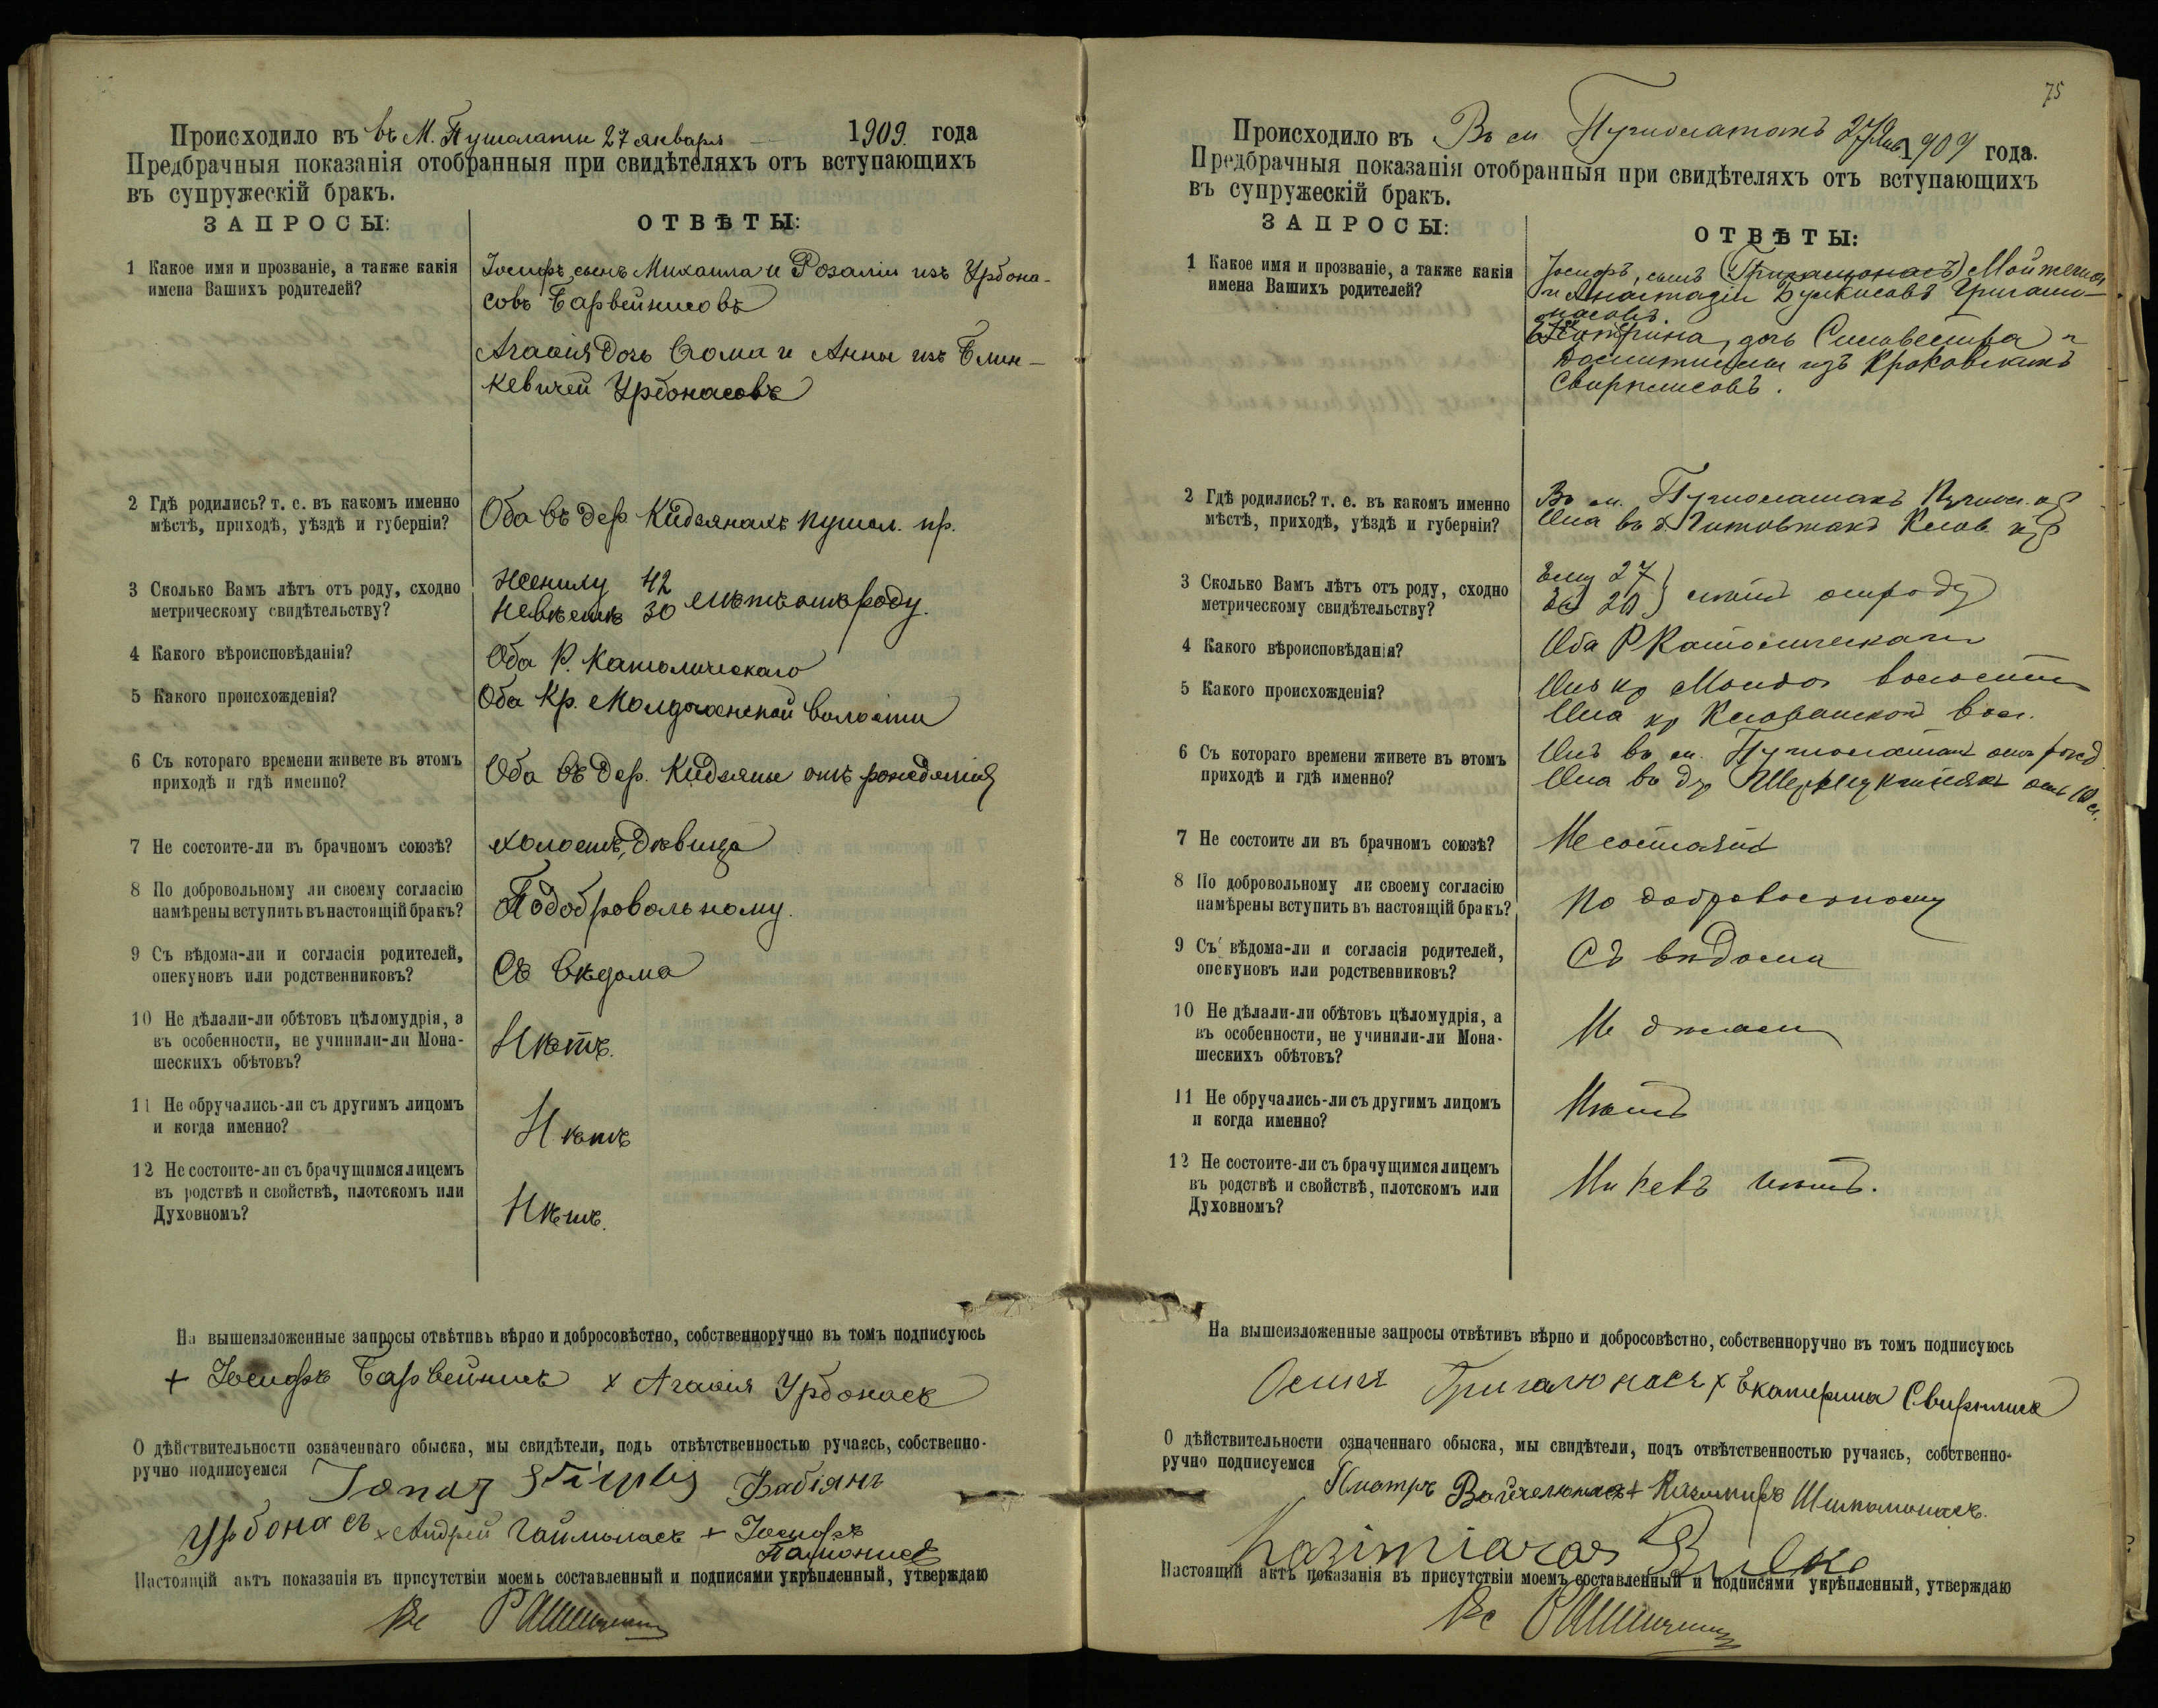 Происходило въ въ М. Пушолаты 27 января 1909 года
Предбрачныя показанія отобранныя при свидѣтеляхъ отъ вступающихъ
въ супружескій бракъ.
ЗАПРОСЫ: ОТВѢТЫ:
1 Какое имя и прозваніе, а также какія
имена Вашихъ родителей?
Іосифъ, сынъ Михаила и Розаліи изъ Урбона-
совъ Барвейнисовъ
Агафія дочь Фома и Анны изъ Блин-
кевичей Урбонасовъ
2 Гдѣ родились? т. е. въ какомъ именно
мѣстѣ, приходѣ, уѣздѣ и губерніи?
Оба въ дер. Кидзянахъ пушол. пр.
3 Сколько Вамъ лѣтъ отъ роду, сходно
метрическому свидѣтельству?
Жениху 42
Невѣстѣ 30 лѣтъ отъ роду.
4 Какого вѣроисповѣданія?
Оба Р. Католическаго
5 Какого происхожденія?
Оба Кр. волости
6 Съ котораго времени живете въ этомъ
приходѣ и гдѣ именно?
Оба въ дер. Кидзяны отъ рожденія
7 Не состоите-ли въ брачномъ союзѣ?
холостъ, дѣвица
8 По добровольному ли своему согласію
намѣрены вступить въ настоящій бракъ?
По добровольному.
9 Съ вѣдома-ли и согласія родителей,
опекуновъ или родственниковъ?
Съ вѣдома
10 Не дѣлали-ли обѣтовъ цѣломудрія, а
въ особенности, не учинили-ли Мона-
шескихъ обѣтовъ?
Нѣтъ.
11 Не обручались-ли съ другимъ лицомъ
и когда именно?
Нѣтъ
12 Не состоите-ли съ брачущимся лицемъ
въ родствѣ и свойствѣ, плотскомъ или
Духовномъ?
Нѣтъ.
На вышеизложенные запросы отвѣтивъ вѣрно и добросовѣстно, собственноручно въ томъ подписуюсь
+ Іосифъ Барвейнисъ x Агафія Урбонасъ
О дѣйствительности означеннаго обыска, мы свидѣтели, подъ отвѣтственностью ручаясь, собственно-
ручно подписуемся Фабіянъ
Урбонасъ x Андрей + Іосифъ
Настоящій актъ показанія въ присутствіи моемъ составленный и подписями укрѣпленный, утверждаю
75
Происходило въ Въ м. 27 Янв 1909 года.
Предбрачныя показанія отобранныя при свидѣтеляхъ отъ вступающихъ
въ супружескій бракъ.
ЗАПРОСЫ: ОТВѢТЫ:
1 Какое имя и прозваніе, а также какія
имена Вашихъ родителей?
Іосифъ, сынъ
и Анастазіи
Екатерина, дочь Сильвестра и
изъ
Свирплисовъ.
2 Гдѣ родились? т. е. въ какомъ именно
мѣстѣ, приходѣ, уѣздѣ и губерніи?
Въ м.
Она въ д.
3 Сколько Вамъ лѣтъ отъ роду, сходно
метрическому свидѣтельству?
Ему 27
Ей 20 лѣтъ отъ роду
4 Какого вѣроисповѣданія?
Оба Р Католическаго
5 Какого происхожденія?
Онъ кр волости
Она кр вол.
6 Съ котораго времени живете въ этомъ
приходѣ и гдѣ именно?
Онъ въ м. отъ рожд.
Она въ др отъ
7 Не состоите ли въ брачномъ союзѣ?
Не состоятъ
8 По добровольному ли своему согласію
намѣрены вступить въ настоящій бракъ?
По добровольному
9 Съ вѣдома-ли и согласія родителей,
опекуновъ или родственниковъ?
Съ вѣдома
10 Не дѣлали-ли обѣтовъ цѣломудрія, а
въ особенности, не учинили-ли Мона-
шескихъ обѣтовъ?
Не дѣлали
11 Не обручались-ли съ другимъ лицомъ
и когда именно?
Нѣтъ
12 Не состоите-ли съ брачущимся лицемъ
въ родствѣ и свойствѣ, плотскомъ или
Духовномъ?
нѣтъ.
На вышеизложенные запросы отвѣтивъ вѣрно и добросовѣстно, собственноручно въ томъ подписуюсь
Осипъ Григалюнасъ x Екатерина Свирплисъ
О дѣйствительности означеннаго обыска, мы свидѣтели, подъ отвѣтственностью ручаясь, собственно-
ручно подписуемся
Kazimiaras
Настоящій актъ показанія въ присутствіи моемъ составленный и подписями укрѣпленный, утверждаю